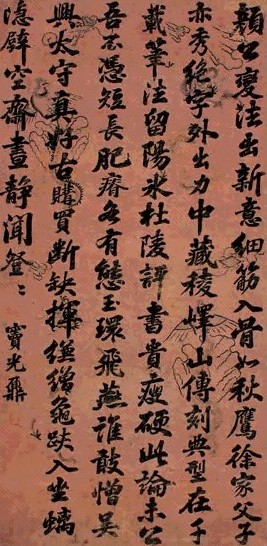 顏公變法出新意細筋入骨如秋鷹徐家父子
亦秀絕字外出力中藏稜嶧山傳刻典型在千
載筆法留陽冰杜陵評書貴瘦硬此論未公
吾不憑短長肥瘠各有態玉環飛燕誰敢憎吳
興太守真好古購買斷缺揮縑繒龜趺入坐螭
隱壁空齋晝靜聞登〻
竇光鼐